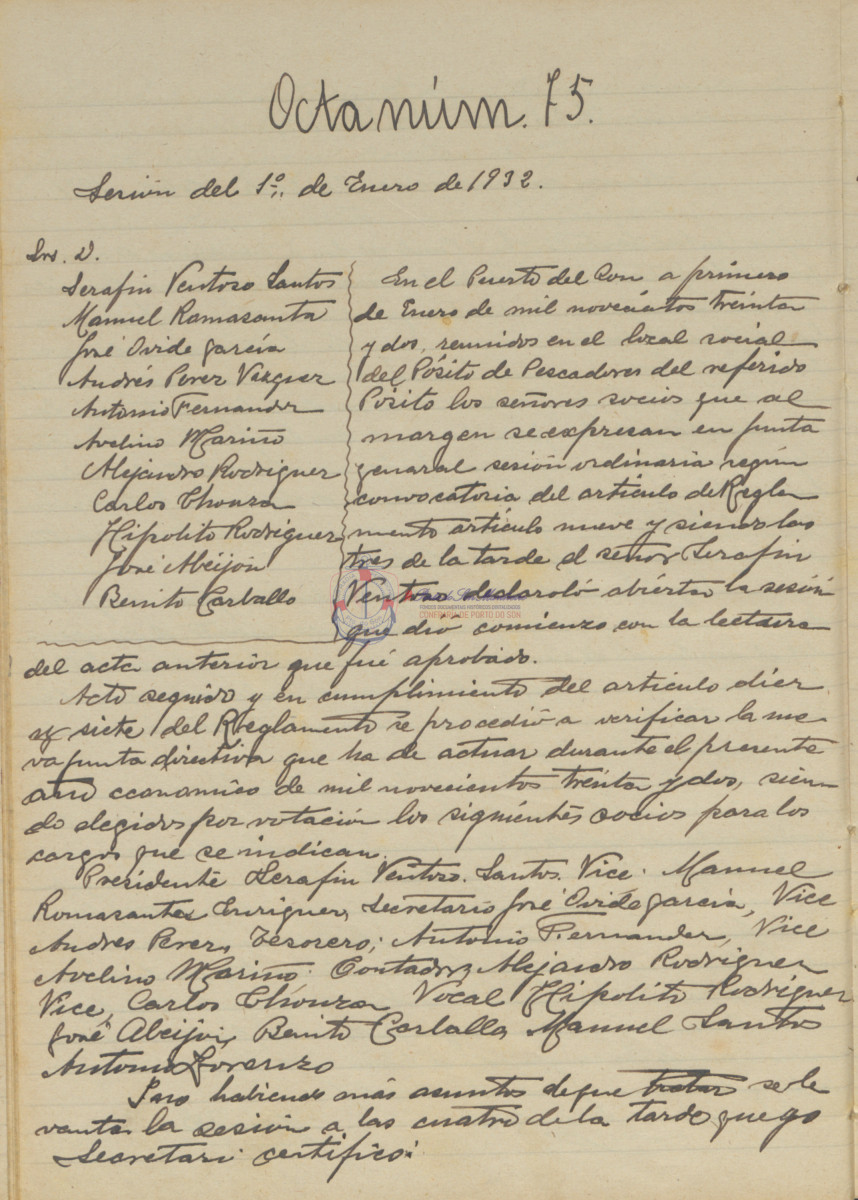 Acta núm. 75.
Sesión del 1º. de Enero de 1932.
Srs. D.
Serafin Ventoso Santos
Manuel Romasanta
José Ovide García
Andrés Perez Vazquez
Antonio Fernandez
Avelino Mariño
Alejandro Rodriguez
Carlos Chouza
Hipolito Rodriguez
José Abeijón
Benito Carballo
En el Puerto del Son a primero
de Enero de mil novecientos treinta
y dos, reunidos en el local social
del Pósito de Pescadores del referido
Pósito los señores socios que al
margen se expresan en junta
genaral sesión ordinaria según
convocatoria del artículo de Regla
mento artículo nueve y siendo las
tres de la tarde el señor Serafin
Ventoso declaroló abierta la sesión
que dió comienzo con la lectura
CONFRARÍA DE PORTO DO SON
del acta anterior que fué aprobado.
Acto seguido y en cumplimiento del artículo diez
y siete del Reglamento se procedió a verificar la nue
va junta directiva que ha de actuar durante el presente
año economico de mil novecientos treinta y dos, sien
do elegidos por votación los siguientes socios para los
cargos que se indican.
Presidente Serafin Ventoso Santos. Vice. Manuel
Romasanta Enriquez, Secretario José Ovide García, Vice
Andres Perez, Tesorero; Antonio Fernandez, Vice
Avelino Mariño. Contador, Alejandro Rodriguez
Vice, Carlos Chouza Vocal Hipolito Rodriguez
José Abeijon, Benito Carballo, Manuel Santos
Antonio Lorenzo
I no habiendo más asuntos de que tratar se le
vanta la sesión a las cuatro de la tarde que yo
Secretari certifico: